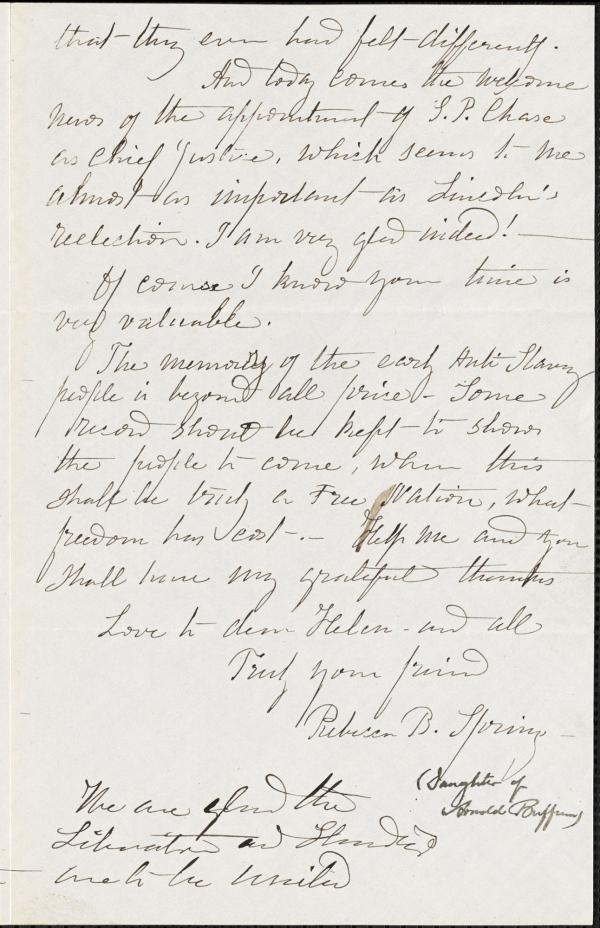 that they ever had felt differently.
And today comes the welcome
news of the appointment of S. P. Chase
as Chief Justice, which seems to me
almost as important as Lincoln's
reelection. I am very glad indeed! —
Of course I know your time is
very valuable.
The memory of the early Anti Slavery
people is beyond all price - Some
record should be kept to show
the people to come, when this
shall be truly a Free Nation, what
freedom has cost. - Help me and you
shall have my grateful thanks
Love to dear Helen - and all
Truly your friend
Rebecca B. Spring -
(Daughter of
Arnold Buffum)
We are glad the
Liberator and Standard
are to be united